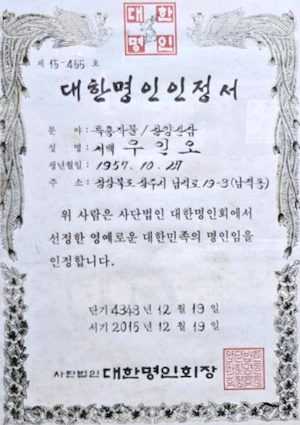 대한
명인
제 15-455 호
대한명인인정서
분 야 : 특용작물 / 곶감산삼
성 명 : 서백 우인오
생년월일 : 1957. 10. 27
주 소 : 경상북도 상주시 남적로 19-3 (남적동)
위 사람은 사단법인 대한명인회에서
선정한 영예로운 대한민족의 명인임을
인정합니다.
단기 4348년 12월 19일
서기 2015년 12월 19일
사단법인 대한명인회장